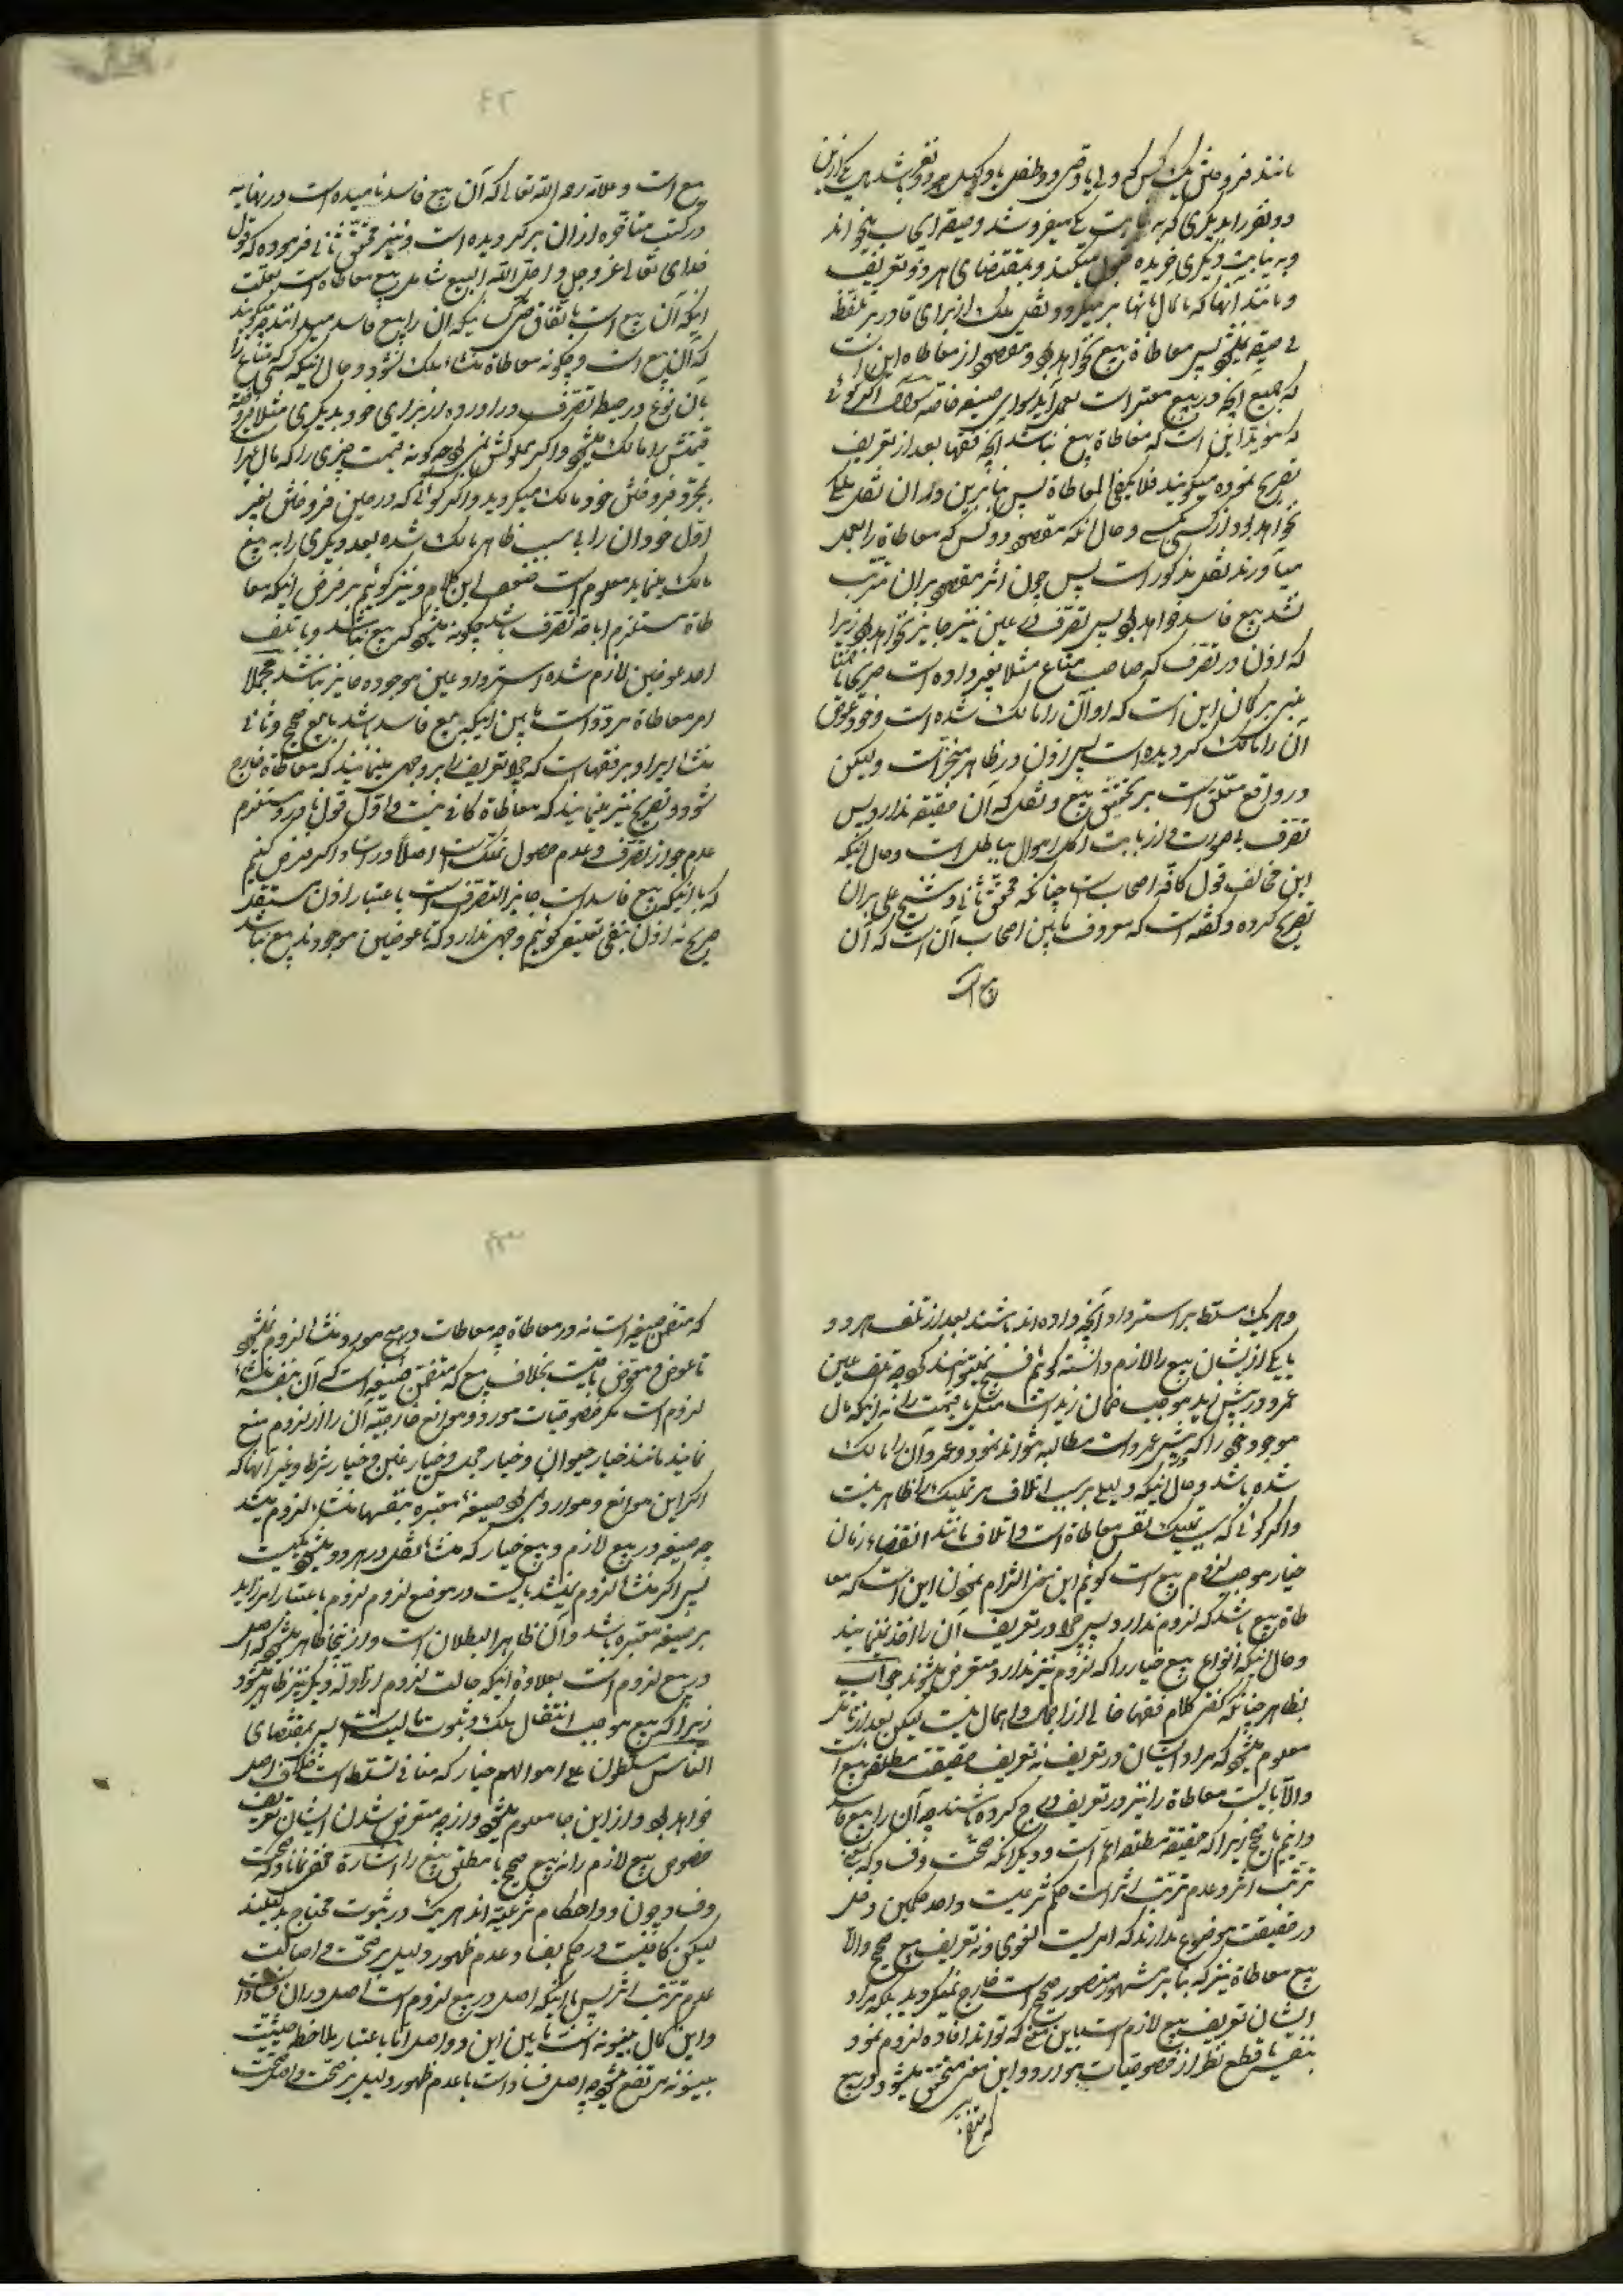 مانند فروختن یک کس که ولی یا وصی دو طفل یا وکیل دو نفر باشد یکی از این
دو نفر را بدیگری که به نیابت یکی میفروشد و صیغه ایجاب میخواند
و به نیابت دیگری خریده قبول میکند و بمقتضای هر دو تعریف
و مانند اینها که مآل بآنها بر میگردد و نقل ملک از برای قادر بر تلفظ
بی صیغه نمیشود پس معاطاة بیع نخواهد بود و مقصود از معاطاة این است
که جمیع آنچه در بیع معتبر است بعمل آید سوای صیغه خاصه سؤال اگر گوئی
که مؤید این است که معاطاة بیع نباشد آنچه فقها بعد از تعریف
تصریح نموده میگویند فلا یکفی المعاطاة پس بنابرین در آن نقل ملکی
نخواهد بود از کسی بکسی و حال آنکه مقصود دو کس که معاطاة را بعمل
میآورند نقل مذکور است پس چون اثر مقصود بر آن مترتب
نشد بیع فاسد خواهد بود پس تصرف در عین نیز جایز نخواهد بود زیرا
که اذن در تصرف که صاحب متاع مثلا بغیر داده است صریحا یا ضمنا
مبنی بر گمان این است که او آن را مالک شده است و خود عوض
آن را مالک گردیده است پس اذن در ظاهر منجز است ولیکن
در واقع معلق است بر تحقق بیع و نقل که آن حقیقه ندارد پس
تصرف باین صورت از بابت اکل اموال بباطل است و حال اینکه
این مخالف قول کافه اصحاب است چنانکه محقق ثانی و شیخ علی بر آن
تصریح کرده و گفته است که معروف ما بین اصحاب آن است که آن
بیع است
۴۲
بیع است و علامه رحمه الله تعالی که آن بیع فاسد نامیده است در نهایه
در کتب متأخره از آن برگردیده است و نیز محقق ثانی فرموده که قول
خدای تعالی عز و جل و احل الله البیع شامل بیع معاطاة است بعلت
اینکه آن بیع است باتفاق حتی کسیکه آن را بیع فاسد میدانند میگویند
که آن بیع است و چگونه معاطاة منشاء ملک نشود و حال اینکه کسی که متاع را
بآن نوع در حیطه تصرف در آورده از برای خود بدیگری مثلا فروخته
قیمتش را مالک میشود و اگر مملوکش نمی بود چه گونه قیمت چیزی را که مال غیر را
بمجرد فروختن خود مالک میگردید و اگر گوئی که در حین فروختن بغیر
اول خود آن را باین سبب ظاهر مالک شده بعد دیگری را به بیع
مالک مینماید معلوم است ضعف این کلام و نیز گوئیم بر فرض اینکه معا
طاة مستلزم اباحه تصرف باشد چگونه میشود که بیع نباشد و با تلف
احد عوضین لازم شده استرداد عین موجوده جایز نباشد مجملا
امر معاطاة مردد است ما بین اینکه بیع فاسد باشد یا بیع صحیح و ثانی
منشا ایراد بر فقها است که چرا تعریف را بر وجهی مینمایند که معاطاة خارج
شود و تصریح نیز مینمایند که معاطاة کافی نیست و اول قول نادر و مستلزم
عدم جواز تصرف و عدم حصول تملک است اصلا در آنها و اگر فرض کنیم
که با اینکه بیع فاسد است جایز التصرف است باعتبار اذن مستقل
صریح نه اذن بنفی تعلیق گوئیم وجهی ندارد که تا عوضین موجودند بیع نباشد
و هر یک مسلط بر استرداد آنچه داده اند باشند بعد از تلف هر دو
یا یکی از ایشان بیع را لازم دانسته گوئیم فسخ نمیتوانند کرد چه تلف عین
عمرو در پیش زید موجب ضمان زید است مثل یا قیمت را نه اینکه مال
موجود خود را که پیش عمرو است مطالبه نتواند نمود و عمرو آن را مالک
شده باشد و حال اینکه دلیلی بر سببیت اتلاف بر تملیک ظاهر نیست
و اگر گوئی که سبب تملیک نفس معاطاة است و اتلاف مانند انقضاء زمان
خیار موجب لزوم بیع است گوئیم این نیز التزام نمودن این است که معا
طاة بیع باشد که لزوم ندارد پس چرا در تعریف آن را اخذ نمینمایند
و حال اینکه انواع بیع خیار را که لزوم نیز ندارد متعرض میشوند جواب
بظاهر چنانکه گفتی کلام فقها خالی از اجمال و اهمال نیست لیکن بعد از تأمل
معلوم میشود که مراد ایشان در تعریف نه تعریف حقیقت مطلق بیع است
و الا بایست معاطاة را نیز در تعریف درج کرده باشند چه آن را بیع فاسد
دانیم یا صحیح زیرا که حقیقه مطلقه اعم است و دیگر آنکه صحت و فساد که بمعنی
ترتب اثر و عدم ترتب اثر است حکم شرعیست و احد حکمین دخل
در حقیقت موضوع ندارند که امریست لغوی و نه تعریف بیع صحیح و الا
بیع معاطاة نیز که بنا بر مشهور منصور صحیح است خارج نمیگردید بلکه مراد
ایشان تعریف بیع لازم است باین معنی که تواند افاده لزوم نمود
بنفسه با قطع نظر از خصوصیات موارد و این معنی متحقق میشود در بیع
که متضمن
۴۳
که متضمن صیغه است نه در معاطاة چه معاطات در هیچ مورد منشا لزوم نمیشود
تا عوض و معوض باقیست بخلاف بیع که متضمن صیغه است که آن بنفسه منشاء
لزوم است مگر خصوصیات مورد و موانع خارجیه آن را از لزوم منع
نماید مانند خیار حیوان و خیار مجلس و خیار غبن و خیار شرط و غیر آنها که
اگر این موانع و موارد نمی بود صیغه معتبره بنفسها منشاء لزوم میشد
چه صیغه در بیع لازم و بیع خیار که منشا نقل در هر دو میشود یکیست
پس اگر منشا لزوم نمیشد بایست در موضع لزوم لزوم باعتبار امر زاید
بر صیغه معتبره باشد و آن ظاهر البطلان است و از اینجا ظاهر میشود که اصل
در بیع لزوم است بعلاوه اینکه جالت لزوم از ادله دیگر نیز ظاهر میشود
زیرا که بیع موجب انتقال ملک و ثبوت مالیت است پس بمقتضای
الناس مسلطون علی اموالهم خیار که منافی تسلط است خلاف اصل
خواهد بود و از این جا معلوم میشود وجه متعرض شدن ایشان تعریف
خصوص بیع لازم را نه بیع صحیح یا مطلق بیع را اشارة مخفی نماند که صحت
و فساد چون دو احکام شرعیه اند هر یک در ثبوت محتاج بدلیلند
لیکن کافیست در حکم بفساد عدم ظهور دلیل بر صحت و اصالت
عدم ترتب اثر پس با اینکه اصل در بیع لزوم است اصل در آن فساد است
و این کمال بینونه است ما بین این دو اصل اما باعتبار ملاحظه حیثیت
بینونه مرتفع میشود چه اصل فساد است با عدم ظهور دلیل بر صحت و اصل صحت